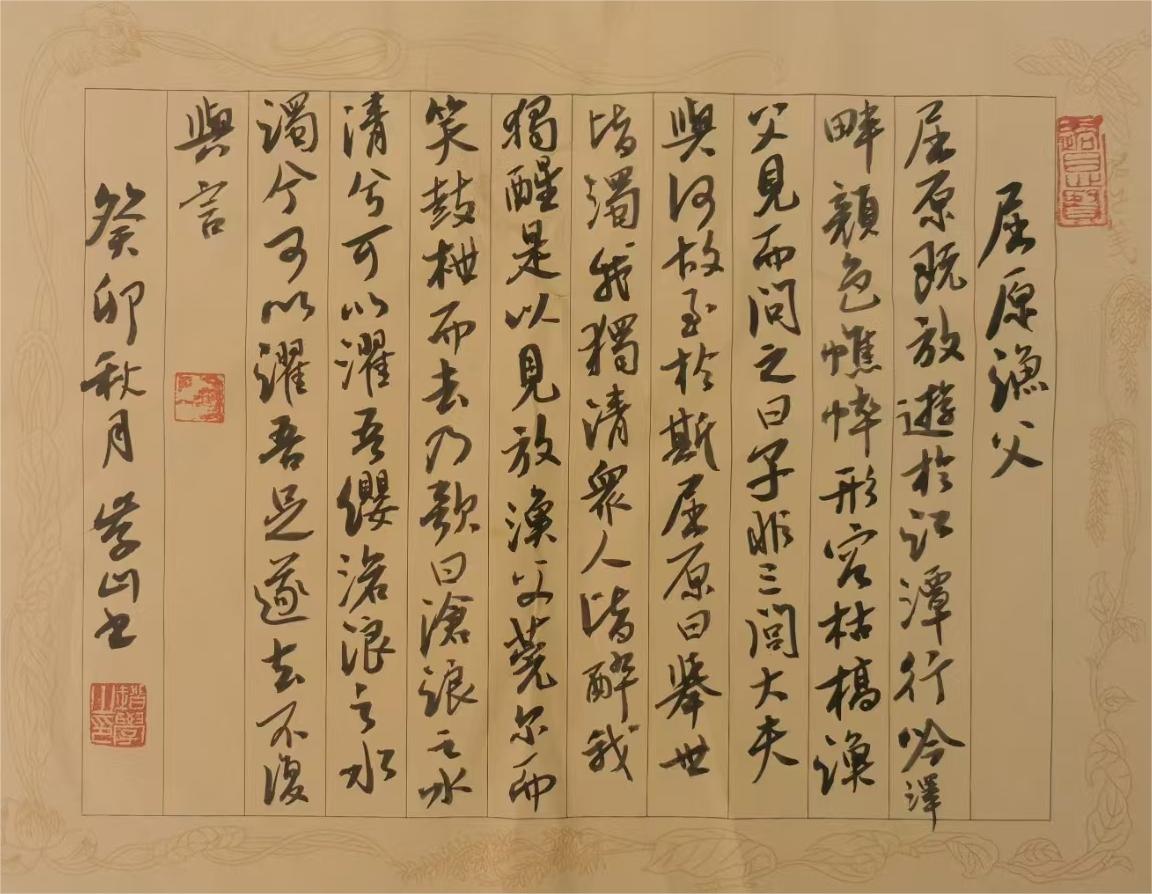 屈原漁父
屈原既放遊於江潭行吟澤
畔顏色憔悴形容枯槁漁
父見而問之曰子非三閭大夫
與何故至於斯屈原曰舉世
皆濁我獨清衆人皆醉我
獨醒是以見放漁父莞尔而
笑鼓枻而去乃歌曰滄浪之水
清兮可以濯吾纓滄浪之水
濁兮可以濯吾足遂去不復
與言
癸卯秋月學山書